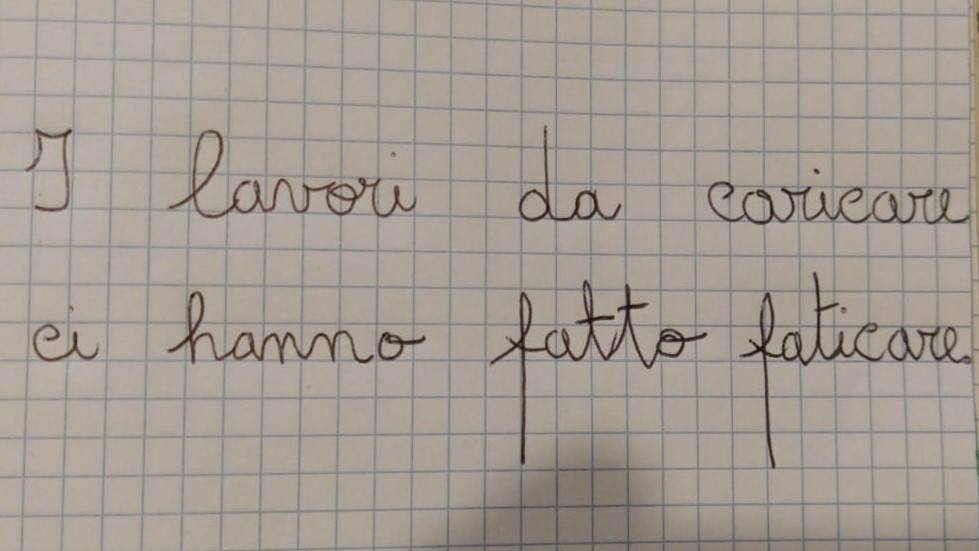 I lavori da caricare
ci hanno fatto faticare.